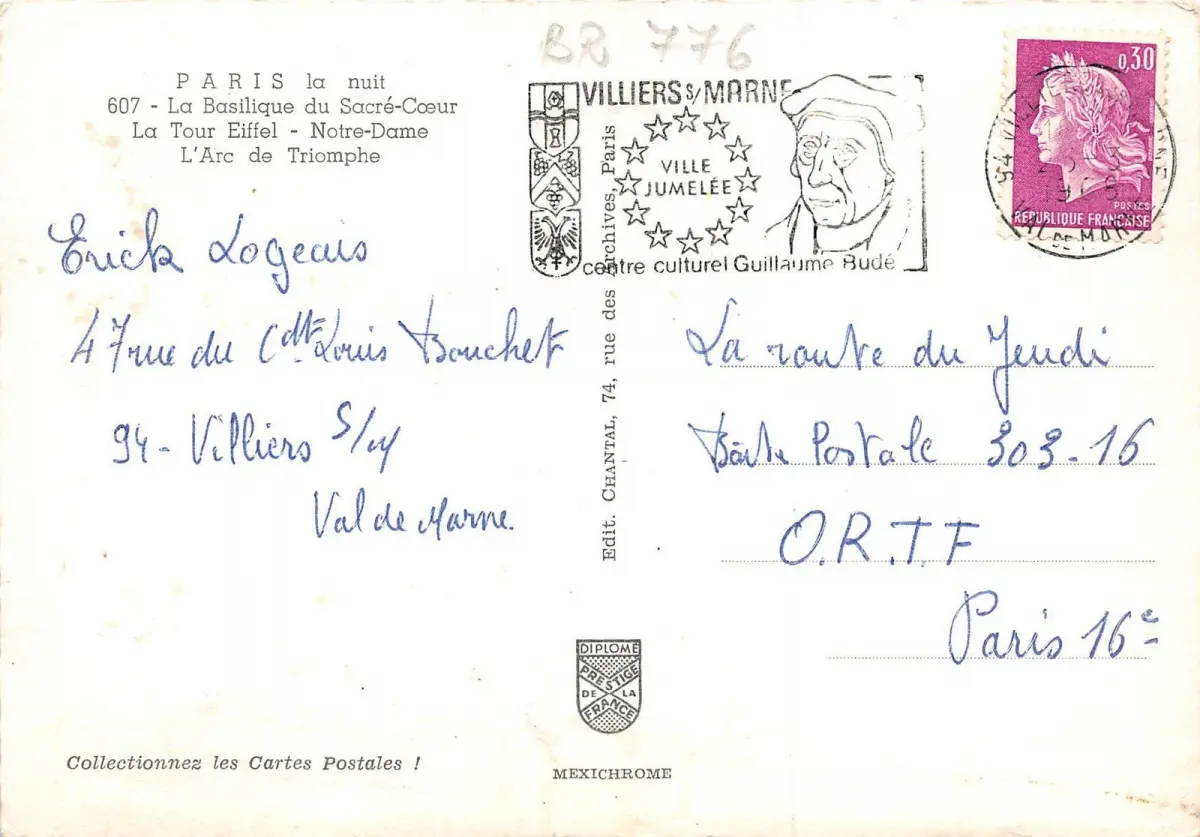 BR 776
PARIS la nuit
607 - La Basilique du Sacré-Cœur
La Tour Eiffel - Notre-Dame
L'Arc de Triomphe
VILLIERS S/ MARNE
VILLE
JUMELÉE
centre culturel Guillaume Budé
0,30
POSTES
REPUBLIQUE FRANÇAISE
VAL DE MARNE
Erick Logeais
47 rue du Cdt Louis Bouchet
94 - Villiers S/M
Val de Marne.
Edit. CHANTAL, 74, rue des Archives, Paris
La route du Jeudi
Boîte Postale 303-16
O.R.T.F
Paris 16e
DIPLOME
PRESTIGE
DE LA
FRANCE
Collectionnez les Cartes Postales !
MEXICHROME